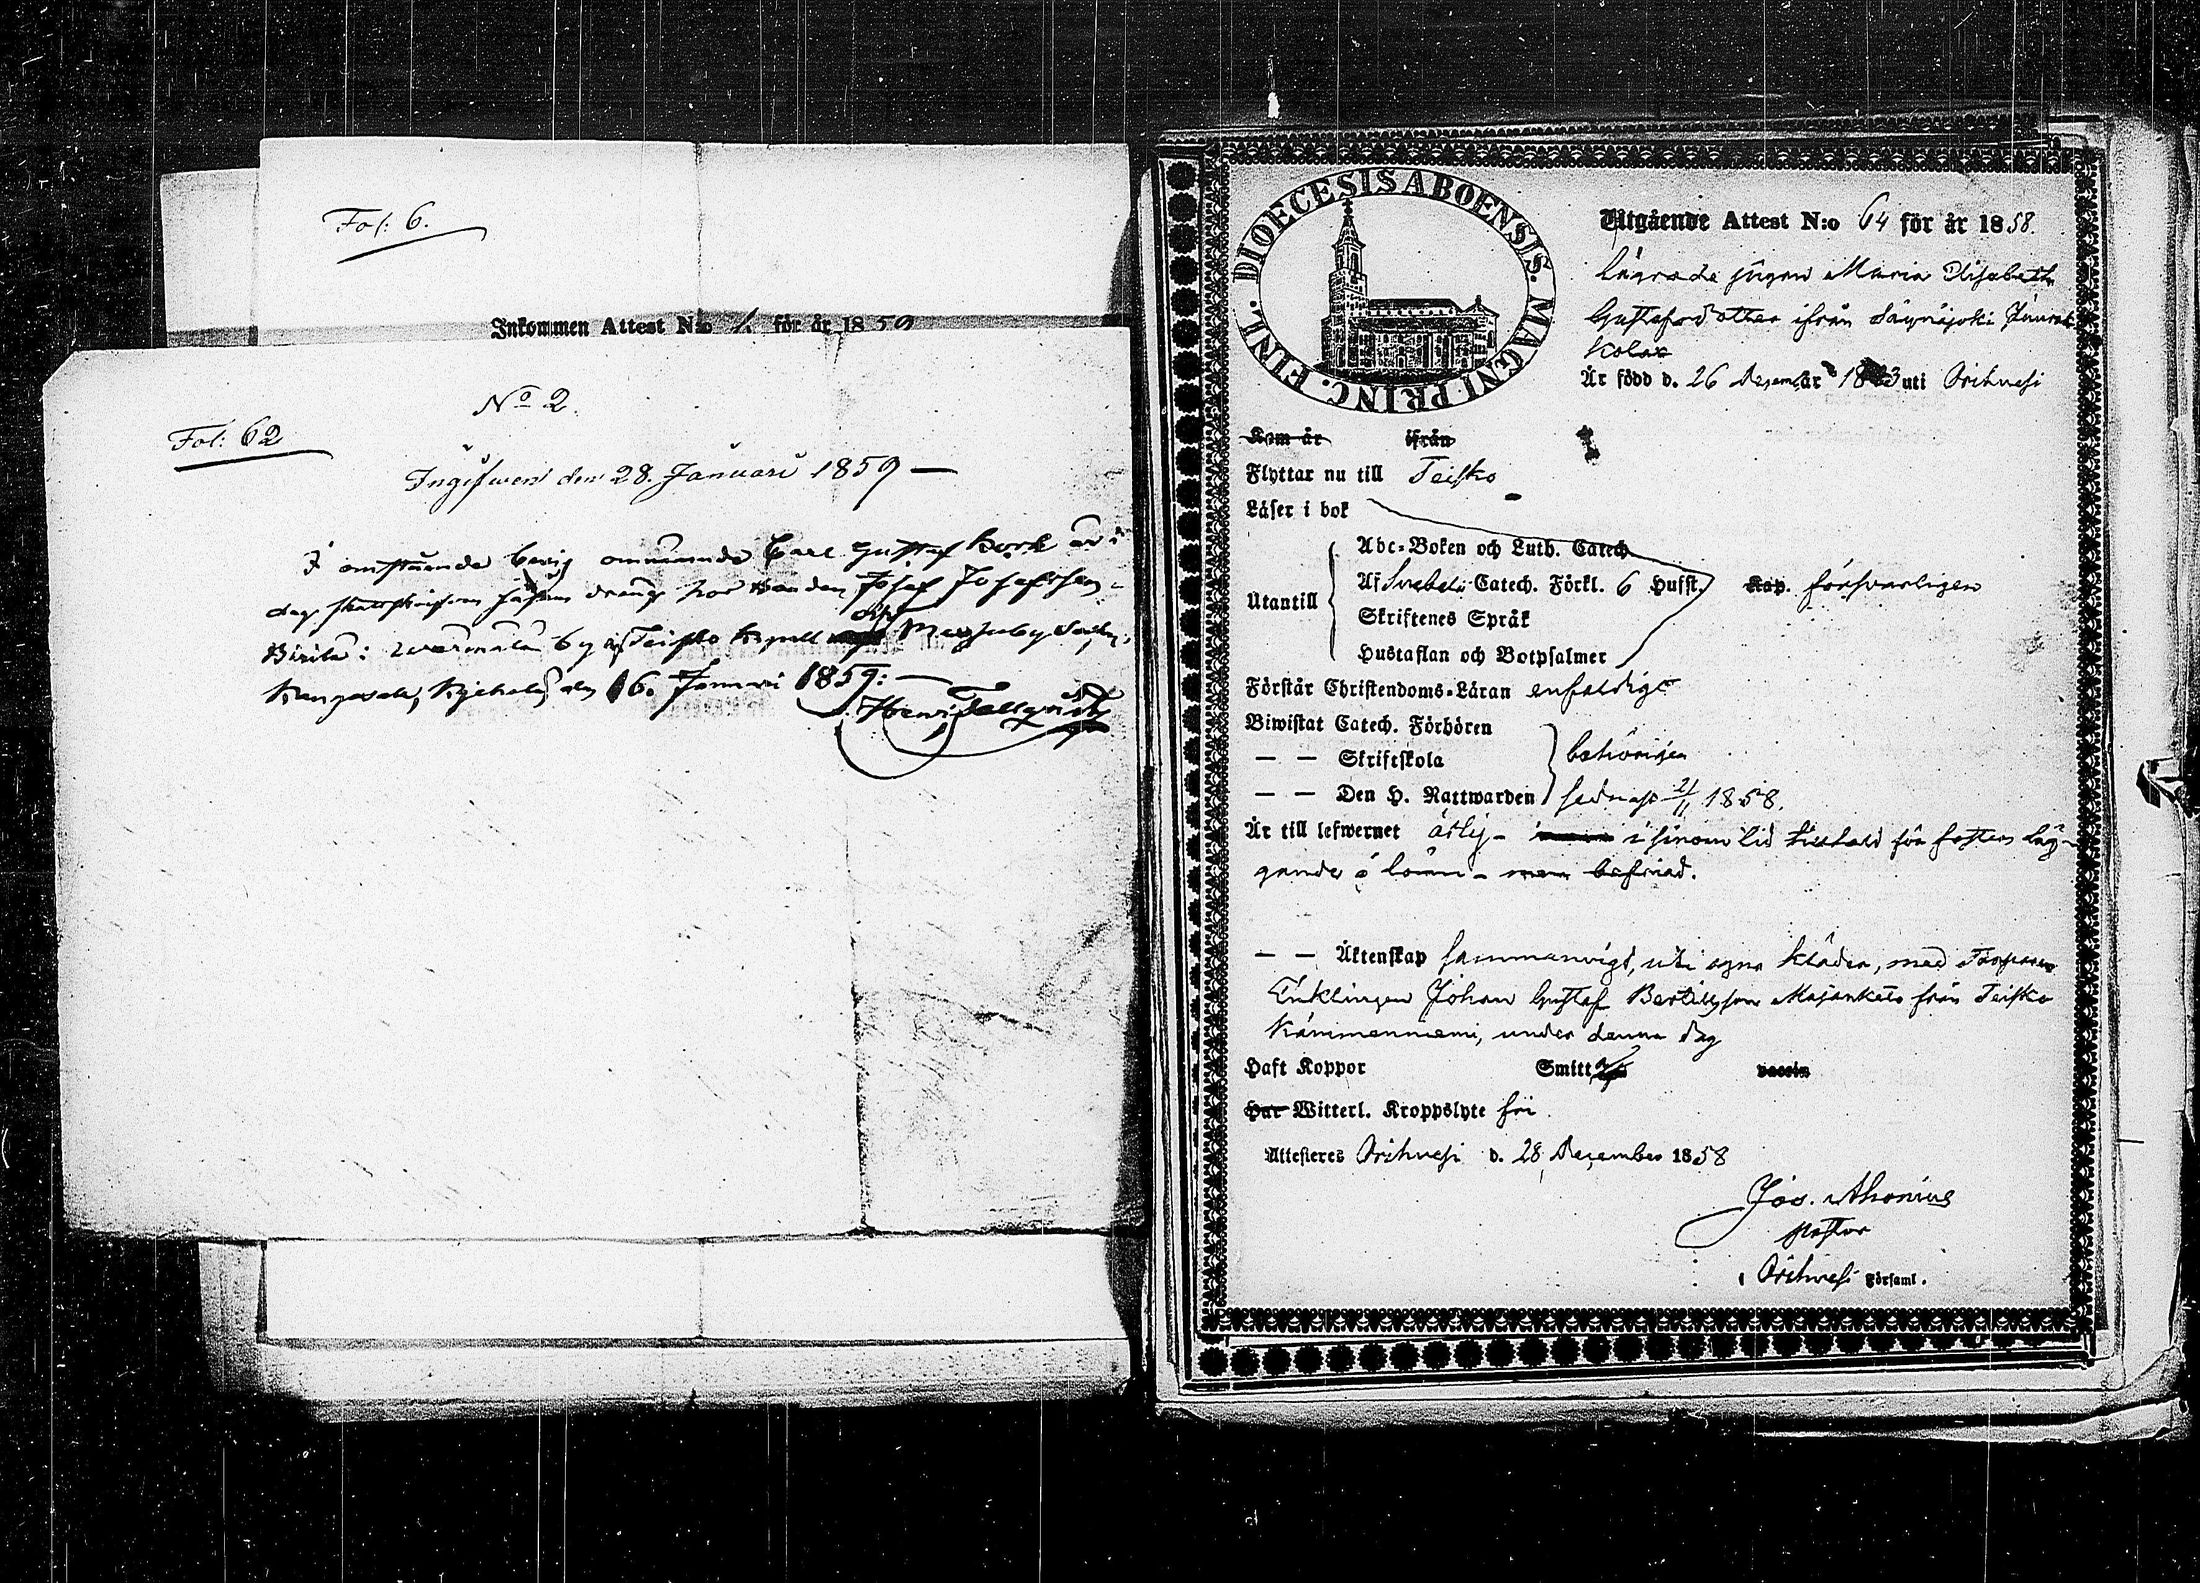 Fol: 6.
Inkommen Attest N:o 1. för år 1859
No 2
Fol: 62
Ingifwen den 28. Januari 1859 —
I omstående bevis omnämnde Carl Gustaf Körk är i
dag skattskrifven såsom dräng hos Bonden Josef Josefsson
och
Birila i Warmala by af Teisko Kapell
Kangasala, Kjekola den 16. Januari 1859: —
Henr: Fallqvist
DIOECESIS ABOENSIS. MAGNI PRINC. FINL.
Utgående Attest N:o 64 för år 1858.
pigan Maria Elisabeth
Gustafsdotter ifrån Säynäjoki
Är född d. 26 December 1833 uti Orihvesi
Kom år ifrån
Flyttar nu till Teisko
Läser i bok
Abc-Boken och Luth. Catech
Utantill
Af Svebelii Catech. Förkl. 6 Hufst. Kap. försvarligen
Skriftenes Språk
Hustaflan och Botpsalmer
Förstår Christendoms-Läran enfaldigt
Biwistat Catech. Förhören
— — Skriftskola behörigen
— — Den H. Nattwarden sednast 21/11 1858.
Är till lefwernet ärlig - i sinom tid för fosters läg-
gande å lönn - men befriad.
— — Äktenskap sammanvigd, uti egna kläder, med Torpare
Enklingen Johan Gustaf Bertilsson Majankulo från Teisko
Kämmenniemi, under denna dag
Haft Koppor Smitt vaccin
Har Witterl. Kroppslyte fri
Attesteres Orihvesi d. 28 December 1858
Jos. Ahonius
pastor
i Orihvesi Församl.